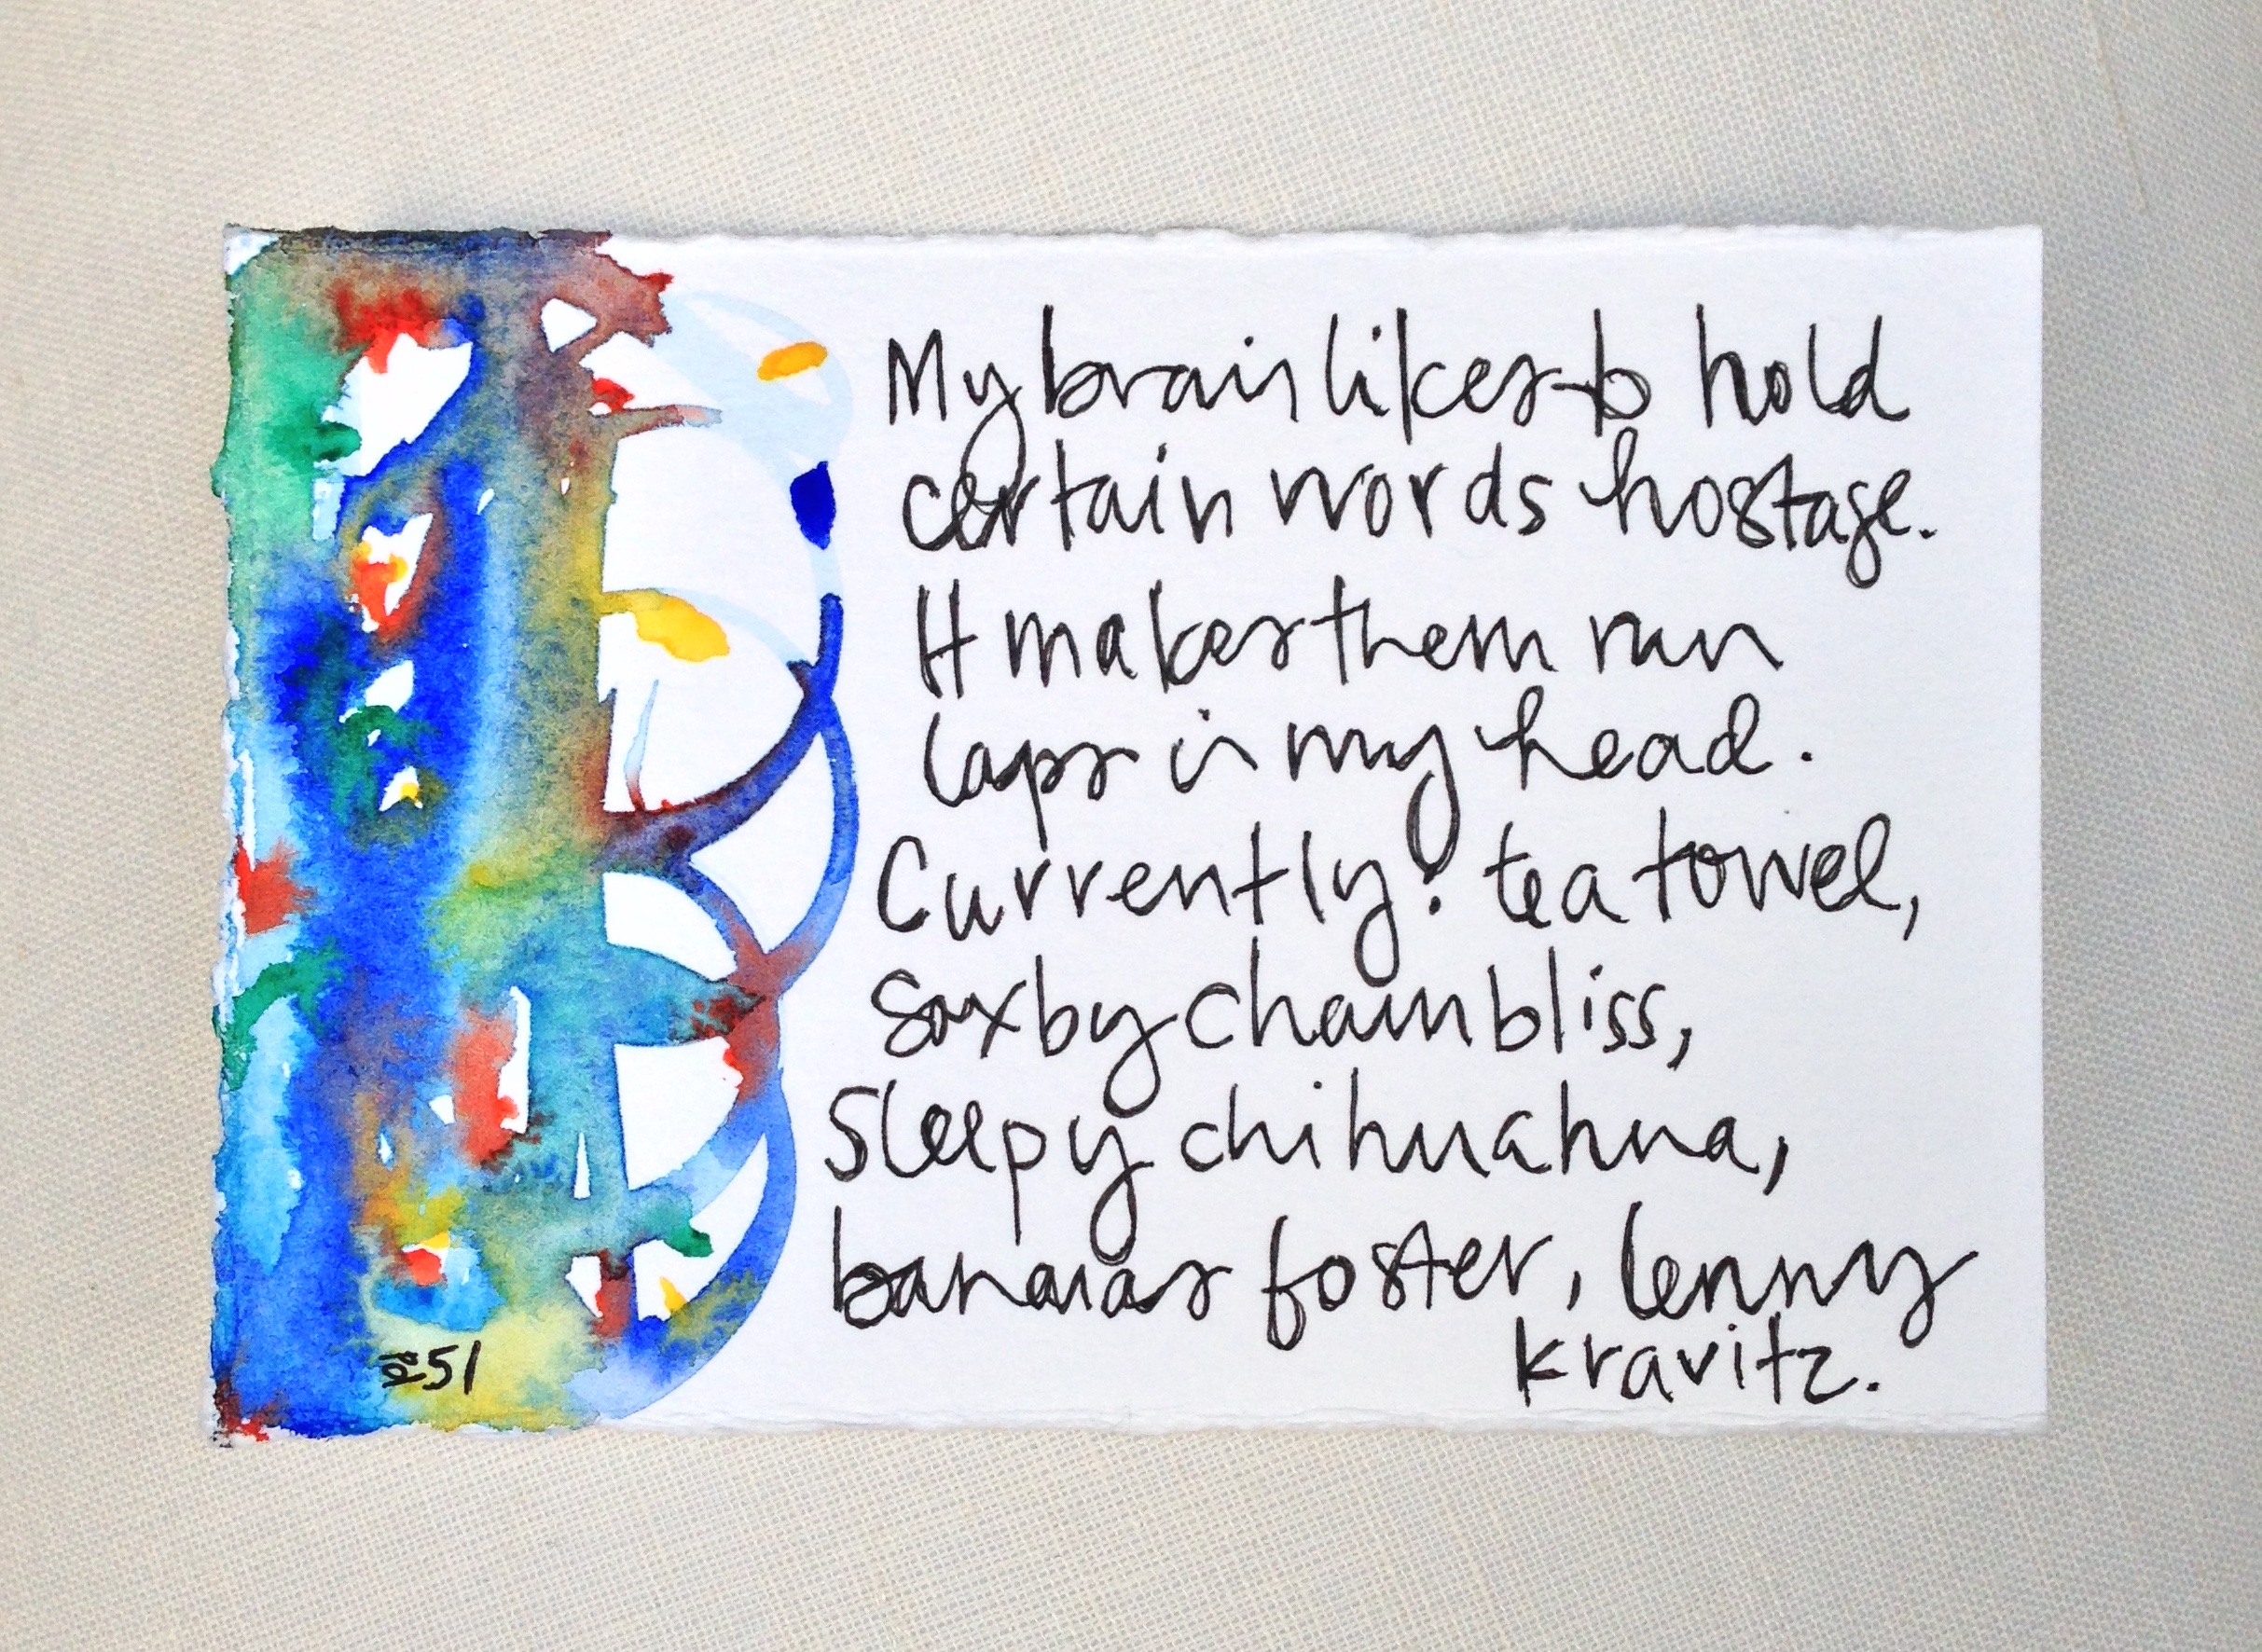 My brain likes to hold
certain words hostage.
It makes them run
laps in my head.
Currently: tea towel,
Saxby chambliss,
Sleepy chihuahua,
bananas foster, lenny
kravitz.
51